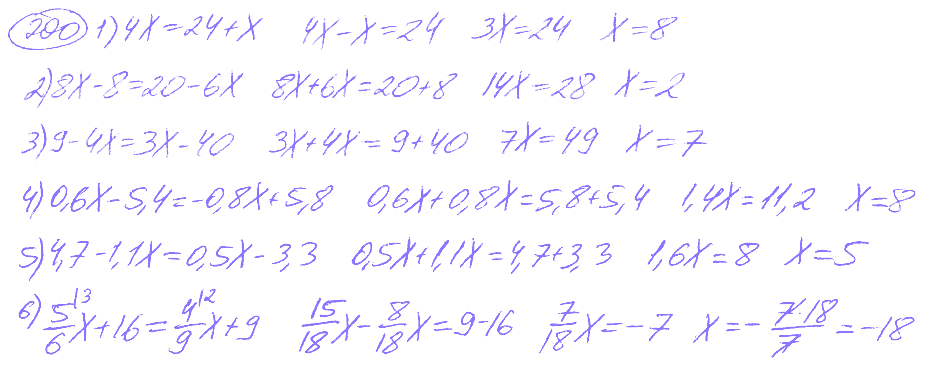 200 1) 4x=24+x 4x-x=24 3x=24 x=8
2) 8x-8=20-6x 8x+6x=20+8 14x=28 x=2
3) 9-4x=3x-40 3x+4x=9+40 7x=49 x=7
4) 0,6x-5,4=-0,8x+5,8 0,6x+0,8x=5,8+5,4 1,4x=11,2 x=8
5) 4,7-1,1x=0,5x-3,3 0,5x+1,1x=4,7+3,3 1,6x=8 x=5
6) 5/6^{\3}x+16=4/9^{\2}x+9 15/18x-8/18x=9-16 7/18x=-7 x=-7·18/7=-18